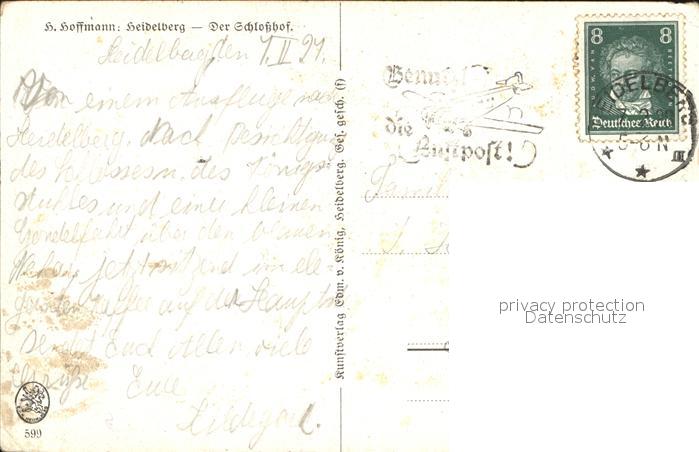 H. Hoffmann: Heidelberg — Der Schloßhof.
Heidelberg, den 7. II 27.
Von einem Ausfluge nach
Heidelberg. Nach Besichtigung
des Schlosses u. des Königs-
stuhles und einer kleinen
Gondelfahrt über den blauen
Nekar, jetzt sitzend im ele-
ganten Kaffee auf der Haupt
sendet Euch Allen viele
Grüße Eure
Hildegard.
599
Kunstverlag Edm. v. König, Heidelberg. Ges. gesch. (f)
Benutzt
die
Luftpost!
8 8
LUDW. VAN BEETHOVEN
Deutsches Reich
HEIDELBERG
5-6 N
Famil
privacy protection
Datenschutz